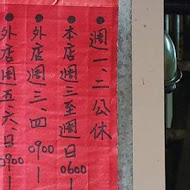 ●週一、二公休
●本店週三至週日0600｜
●外店週三、四0900｜
●外店週五、六、日0900｜